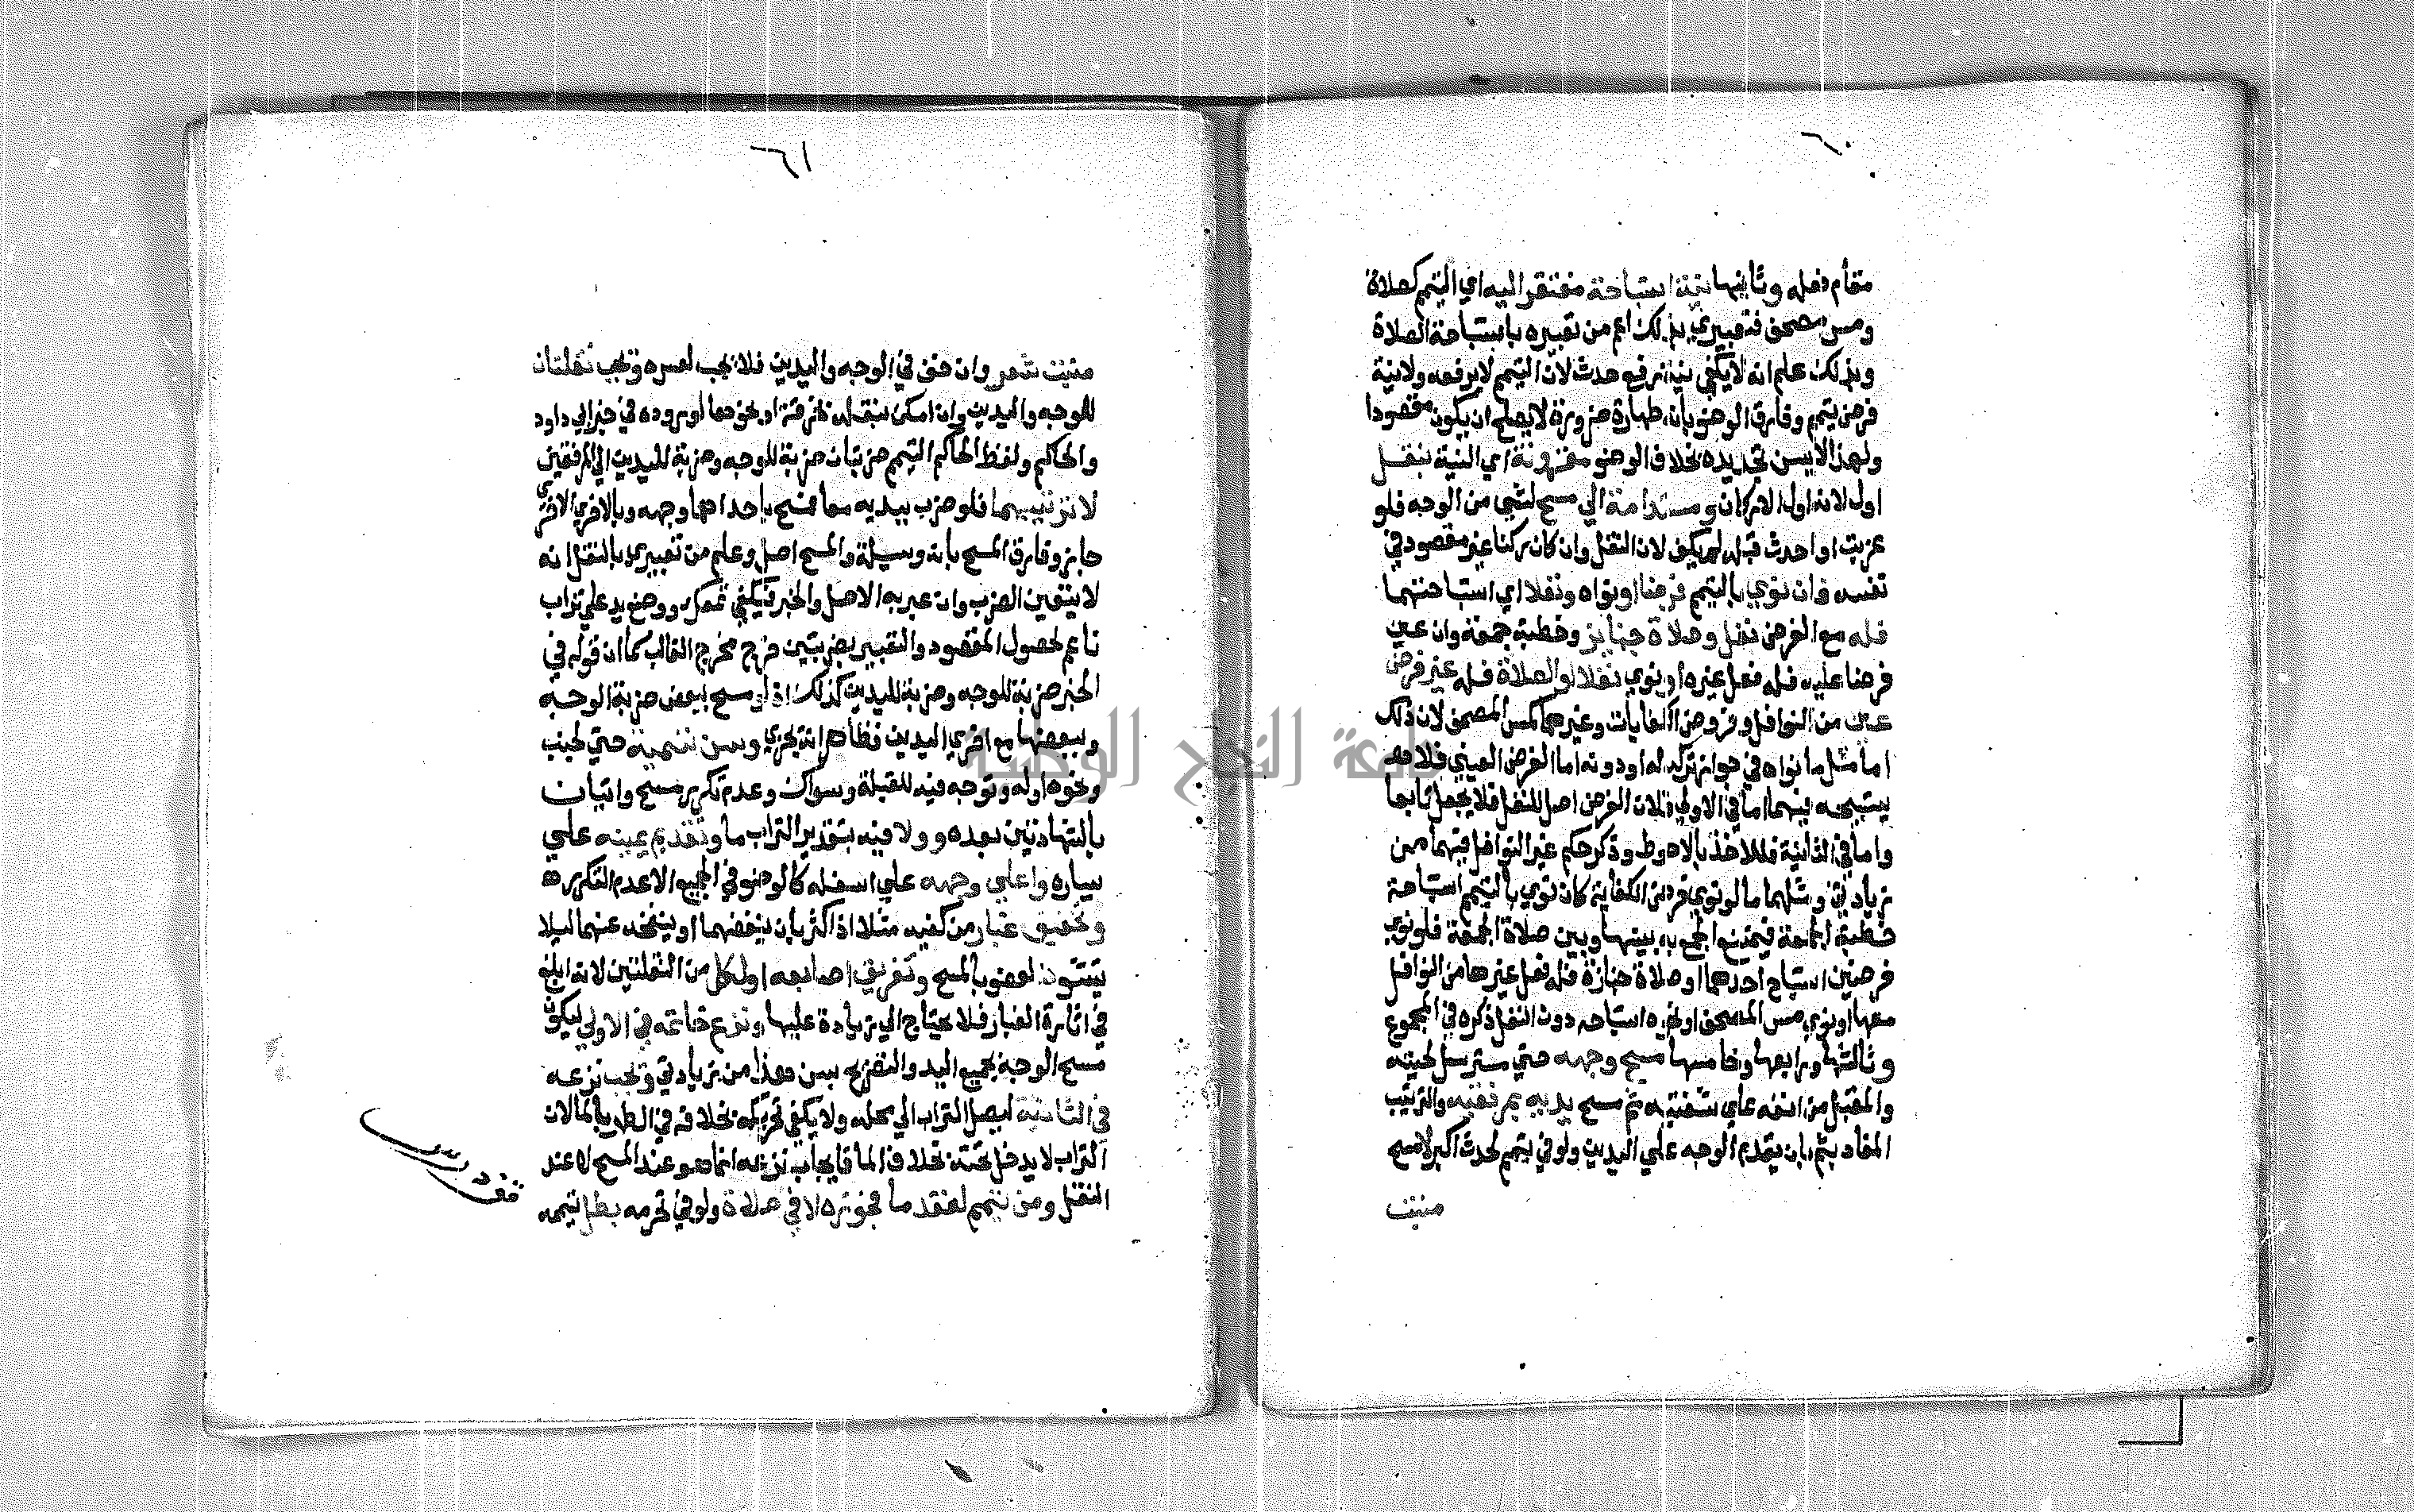 ٦٠
مقام فعله وثانيها نية استباحة مفتقر اليه اي التيمم كصلاة
ومس مصحف فتعبيري بذلك اعم من تعبيره باستباحة الصلاة
وبذلك علم انه لا يكفي نية رفع حدث لان التيمم لا يرفعه ولا نية
فرض تيمم وفارق الوضو بانه طهارة ضرورة لا يصلح ان يكون مقصودا
ولهذا لا يسن تجديده بخلاف الوضو مقرونة اي النية بنقل
اول لانه اول الاركان ومستدامة الي مسح لشي من الوجه فلو
عزبت او احدث قبله لم يكف لان النقل وان كان ركنا غير مقصود في
نفسه فان نوي بالتيمم فرضا او نواه ونفلا اي استباحتهما
فله مع الفرض نفل وصلاة جنايز وخطبة جمعة وان عين
فرضا عليه فله فعل غيره او نوي نفلا او الصلاة فله غير فرض
عين من النوافل وفروض الكفايات وغيرهما كمس المصحف لان ذلك
اما مثل ما نواه في جواز تركه له او دونه اما الفرض العيني فلا
يستبيحه فيهما اما في الاولي فلان الفرض اصل للنفل فلا يجعل تابعا
واما في الثانية فللاخذ بالاحوط وذكر حكم غير النوافل فيهما من
زيادتي ومثلهما ما لو نوي فرض الكفاية كان نوي بالتيمم استباحة
خطبة الجمعة فيمتنع الجمع به بينها وبين صلاة الجمعة فلو نوي
فرضين استباح احدهما او صلاة جنازة فله فعل غيرها من النوافل
معها او نوي مس المصحف او نحوه استباحه دون النفل ذكره في المجموع
وثالثها ورابعها وخامسها مسح وجهه حتي مسترسل لحيته
والمقبل من انفه علي شفتيه ثم مسح يديه بمرفقيه والترتيب
المفاد بثم بان يقدم الوجه علي اليدين ولو في تيمم لحدث اكبر لا مسح
منبت
٦١
منبت شعر وان خف في الوجه واليدين فلا يجب لعسره وتجب نقلتان
للوجه واليدين وان امكن بنقله بخرقة او نحوها لوروده في خبر ابي داود
والحاكم ولفظ الحاكم التيمم ضربتان ضربة للوجه وضربة لليدين الي المرفقين
لا ترتيبهما فلو ضرب بيديه معا فمسح باحداهما وجهه وبالاخري الاخري
جاز وفارق المسح بانه وسيلة والمسح اصل وعلم من تعبيري بالنقل انه
لا يتعين الضرب وان عبر به الاصل والخبر فيكفي تمعك ووضع يد علي تراب
ناعم لحصول المقصود والتعبير بضربتين خرج مخرج الغالب كما ان قوله في
الخبر ضربة للوجه وضربة لليدين كذلك اذ لو مسح ببعض ضربة الوجه
وببعضها مع اخري اليدين فظاهر انه يجزي ويسن تسمية حتي لجنب
ونحوه اوله وتوجه فيه للقبلة وسواك وعدم تكرير مسح واتيان
بالشهادتين بعده وولا فيه بتقدير التراب ما وتقديم يمينه علي
يساره واعلي وجهه علي اسفله كالوضو في الجميع الا عدم التكرير
وتخفيف غبار من كفيه مثلا اذا كثر بان ينفضهما او ينفخه عنهما ليلا
يتشوه العضو بالمسح وتفريق اصابعه اول كل من النقلتين لانه ابلغ
في اثارة الغبار فلا يحتاج الي زيادة عليها ونزع خاتمه في الاولي ليكون
مسح الوجه بجميع اليد والتصريح بسن هذا من زيادتي وتجب نزعه
في الثانية ليصل التراب الي محله ولا يكفي تحريكه بخلافه في الطهر بالما لان
التراب لا يدخل تحته بخلاف الما فايجاب نزعه انما هو عند المسح لا عند
النقل ومن تيمم لفقد ما فجوزه لا في صلاة ولو في تحرمه بطل تيممه
جامعة النجاح الوطنية